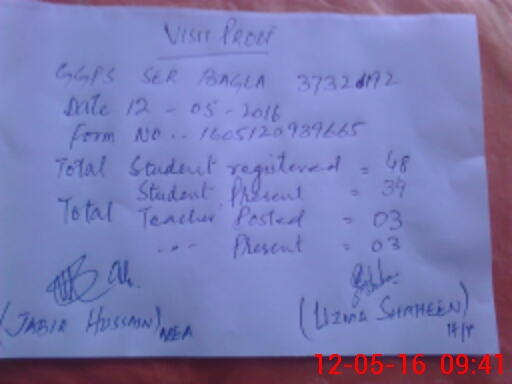 VISIT PROOF
GGPS SER BAGLA 37320192
Date 12-05-2016
Form NO.. 1605120939665
Total Student registered = 48
Student Present = 39
Total Teacher Posted = 03
-..- Present = 03
(JABIR HUSSAIN) MEA
(UZMA SHAHEEN)
12-05-16 09:41